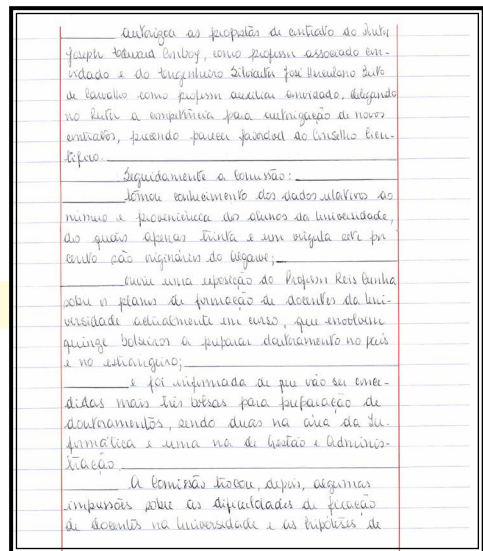 autorizou as propostas de contrato do Doutor
Joseph Edward Conboy, como professor associado con-
vidado e do Engenheiro Silvestre José Herculano Brito
de Carvalho como professor auxiliar convidado, delegando
no Reitor a competência para autorização de novos
contratos, precendo parecer favorável do Conselho Cien-
tífico.
Seguidamente a Comissão:
tomou conhecimento dos dados relativos ao
número e proveniência dos alunos da Universidade,
dos quais apenas trinta e um vírgula sete por
cento são originários do Algarve;
ouviu uma exposição do Professor Reis Cunha
sobre o planos de formação de docentes da Uni-
versidade actualmente em curso, que envolvem
quinze bolseiros a preparar doutoramento no país
e no estrangeiro;
e foi informada de que vão ser conce-
didas mais três bolsas para preparação de
doutoramentos, sendo duas na área da In-
formática e uma na de Gestão e Adminis-
tração
A Comissão trocou, depois, algumas
impressões sobre as dificuldades de fixação
de docentes na Universidade e as hipóteses de